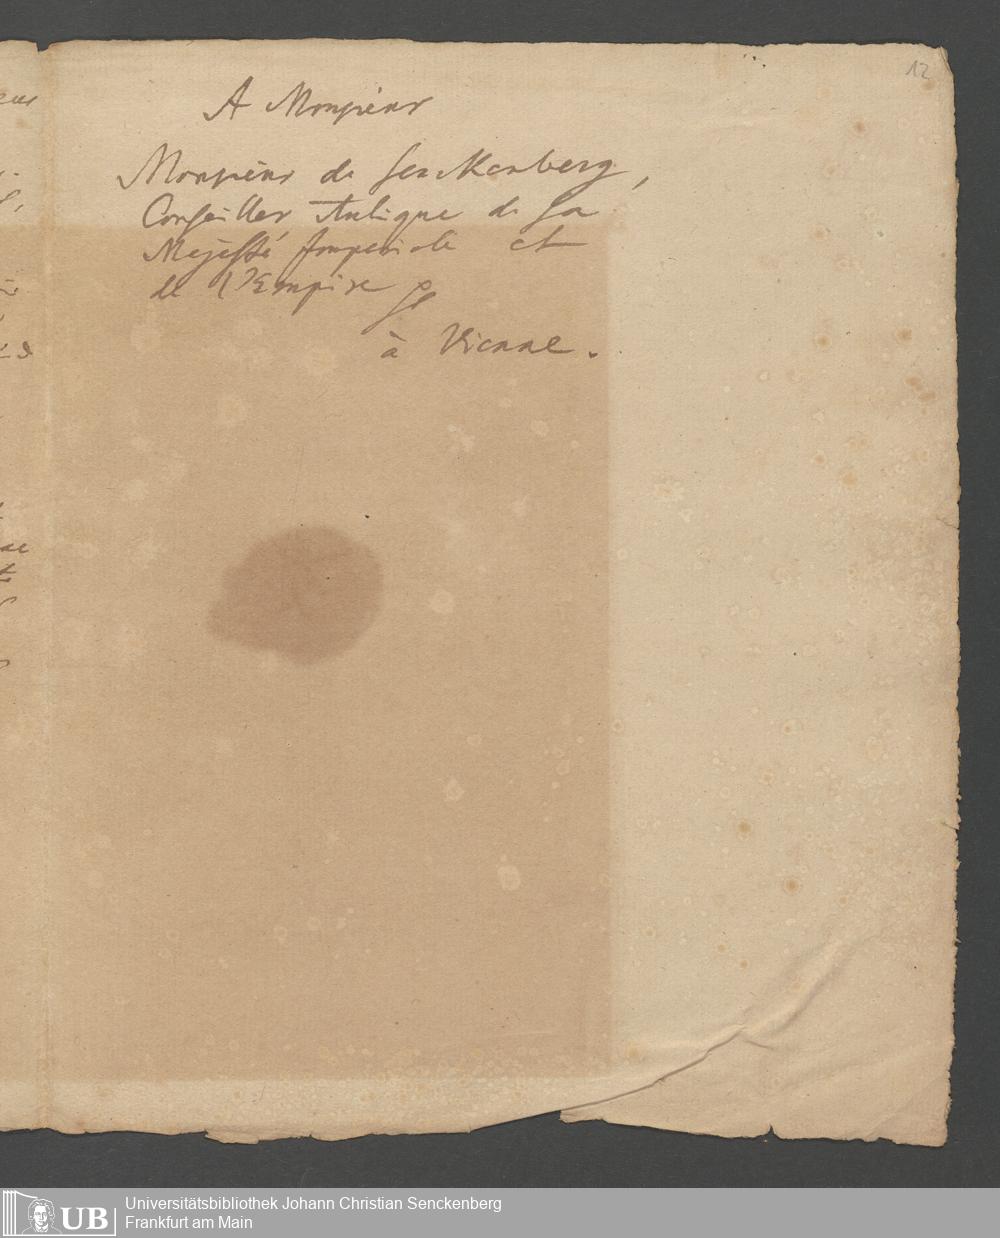 12
A Monsieur
Monsieur de Senckenberg,
Conseiller Aulique de Sa
Majesté Imperiale et
de l'Empire
à Vienne.
UB
Universitätsbibliothek Johann Christian Senckenberg
Frankfurt am Main